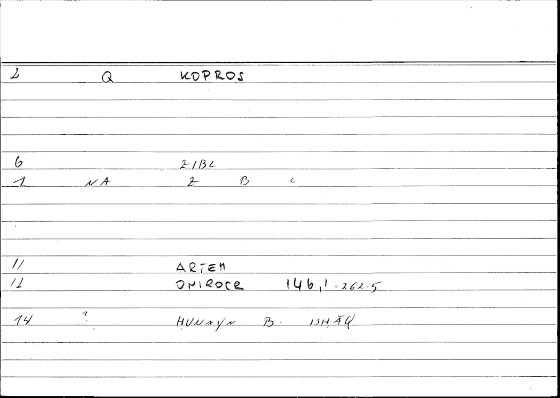 2 Q KOPROS
6 ZIBL
1 NA Z B L
11 ARTEM
12 ONIROCR 146,1-262.5
14 ? HUNAYN B. ISHĀQ